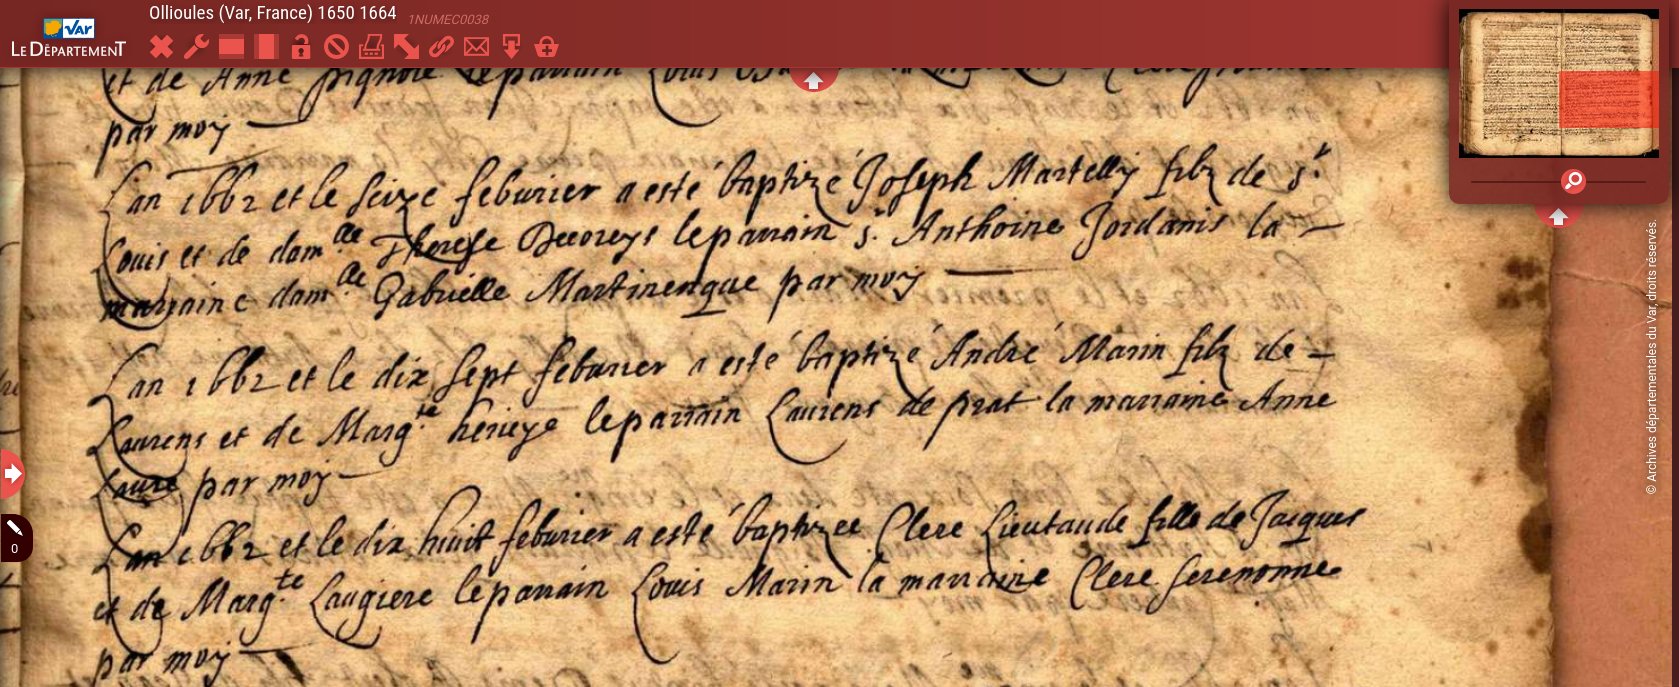 Ollioules (Var, France) 1650 1664 1NUMEC0038
VAR
LE DÉPARTEMENT
et de Anne pignole le parrain Louis
par moy
Lan 1662 et le seize feburier a esté baptizé Joseph Martelly filz de sr.
Louis et de damlle Therese Decoreys le parrain sr. Anthoine Jordanis la
marraine damlle Gabrielle Martinenque par moy
Lan 1662 et le dix sept feburier a esté baptizé André Marin filz de
Laurens et de Margte. le parrain Laurens de prat la marraine Anne
Laure par moy
Lan 1662 et le dix huit feburier a esté baptizee Clere Lieutaude fille de Jacques
et de Margte. Laugiere le parrain Louis Marin la marraine Clere Serenonne
par moy
0
© Archives départementales du Var, droits réservés.